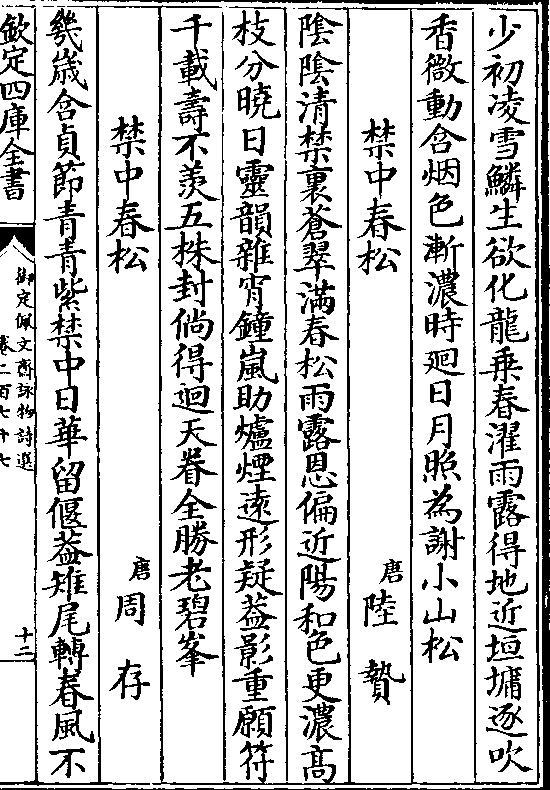 少初凌雪鱗生欲化龍乗春濯雨露得地近垣墉逐吹
香微動含烟色漸濃時廻日月照為謝小山松
禁中春松 唐陸贄
陰陰清禁裏蒼翠滿春松雨露恩偏近陽和色更濃髙
枝分曉日靈韻雜宵鐘嵐助爐煙遠形疑葢影重願符
千載壽不羨五株封倘得迴天眷全勝老碧峯
禁中春松 唐周存
幾歳含貞節青青紫禁中日華留偃葢雉尾轉春風不
欽定四庫全書
御定佩文齋詠物詩選
卷二百七十七
十二